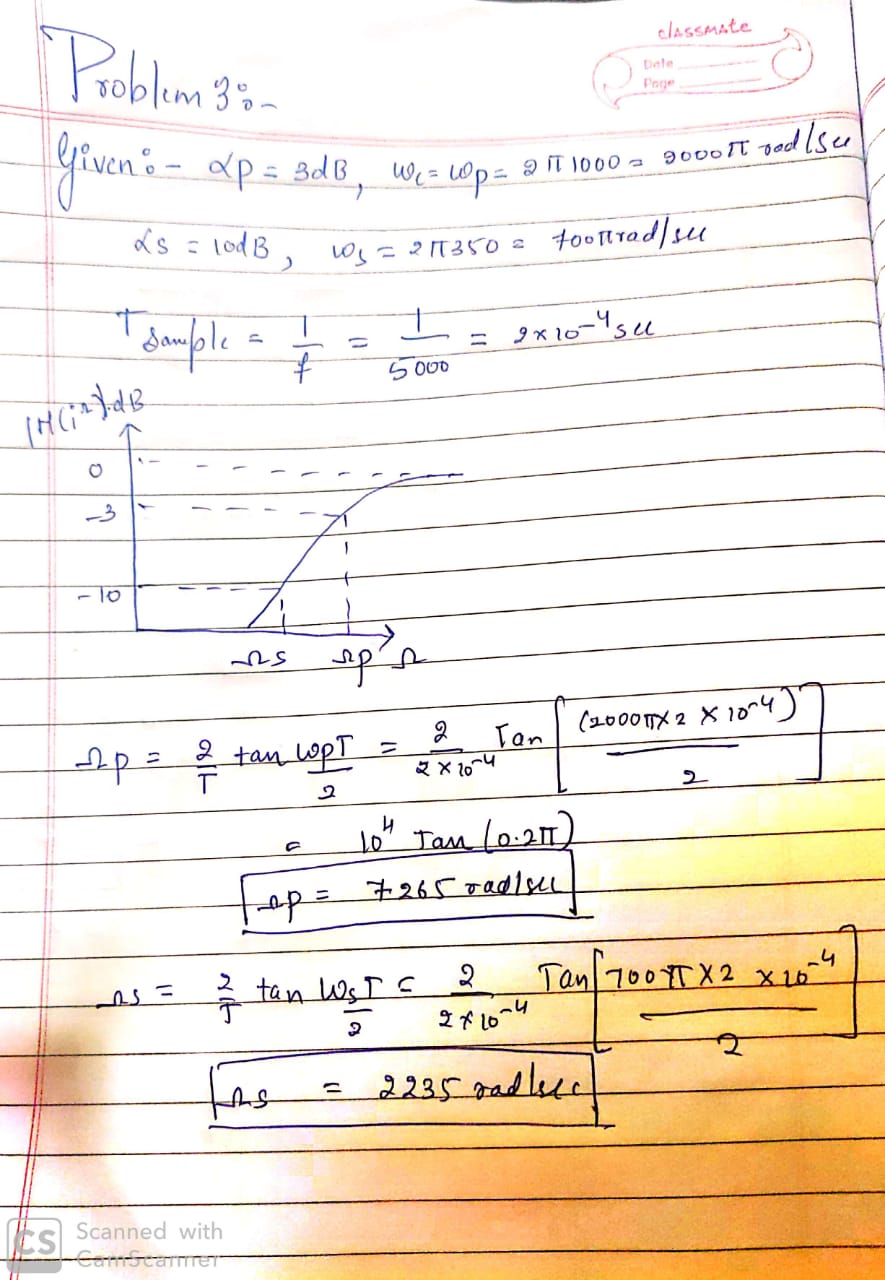 classmate
Date
Page
Problem 3:-
Given:- αp = 3dB, ωc = ωp = 2π 1000 = 2000π rad/sec
αs = 10dB, ωs = 2π350 = 700π rad/sec
T sample = 1/f = 1/5000 = 2×10⁻⁴ sec
|H(jΩ)| dB
0
-3
-10
Ωs Ωp Ω
Ωp = 2/T tan ωpT/2 = 2/2×10⁻⁴ Tan [(2000π×2×10⁻⁴)/2]
= 10⁴ Tan (0.2π)
Ωp = 7265 rad/sec
Ωs = 2/T tan ωsT/2 = 2/2×10⁻⁴ Tan [700π×2×10⁻⁴/2]
Ωs = 2235 rad/sec
CS Scanned with
CamScanner